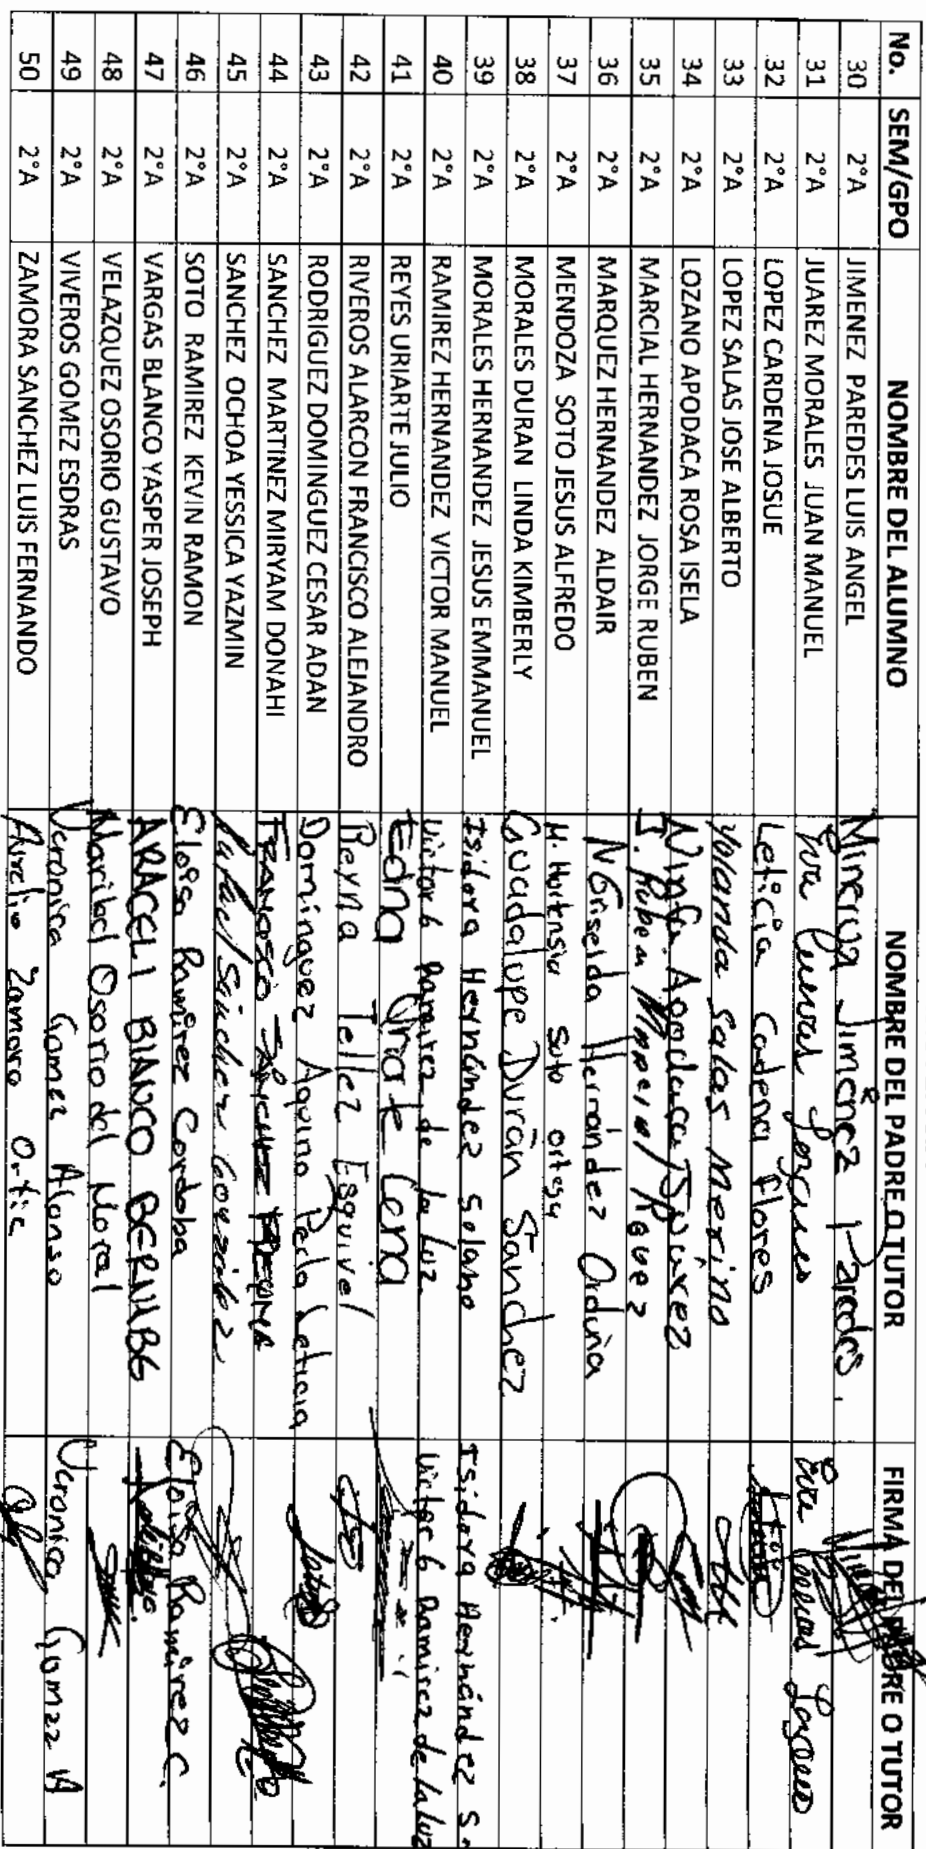 No. SEM/GPO NOMBRE DEL ALUMNO NOMBRE DEL PADRE O TUTOR FIRMA DEL PADRE O TUTOR
30 2°A JIMENEZ PAREDES LUIS ANGEL Minerva Jiménez Paredes.
31 2°A JUAREZ MORALES JUAN MANUEL Eva
32 2°A LOPEZ CARDENA JOSUE Leticia Cadena flores
33 2°A LOPEZ SALAS JOSE ALBERTO Yolanda Salas Merino
34 2°A LOZANO APODACA ROSA ISELA Ninfa Apodaca Juárez
35 2°A MARCIAL HERNANDEZ JORGE RUBEN J. Ruben Marcial
36 2°A MARQUEZ HERNANDEZ ALDAIR Griselda Hernández Orduña
37 2°A MENDOZA SOTO JESUS ALFREDO M. Hortensia Soto ortega
38 2°A MORALES DURAN LINDA KIMBERLY Guadalupe Durán Sánchez
39 2°A MORALES HERNANDEZ JESUS EMMANUEL Isidora Hernández Solano Isidora Hernández S.
40 2°A RAMIREZ HERNANDEZ VICTOR MANUEL Victor G Ramirez de la Luz. Victor G Ramirez de la luz
41 2°A REYES URIARTE JULIO Edna Uriarte
42 2°A RIVEROS ALARCON FRANCISCO ALEJANDRO Reyna Tellez Esquivel
43 2°A RODRIGUEZ DOMINGUEZ CESAR ADAN Dominguez Aquino Perla Leticia
44 2°A SANCHEZ MARTINEZ MIRYAM DONAHI
45 2°A SANCHEZ OCHOA YESSICA YAZMIN Rafael Sánchez González
46 2°A SOTO RAMIREZ KEVIN RAMON Eloisa Ramirez Cordoba Eloisa Ramirez C.
47 2°A VARGAS BLANCO YASPER JOSEPH ARACELI BLANCO BERNABE
48 2°A VELAZQUEZ OSORIO GUSTAVO Maribel Osorio del Moral
49 2°A VIVEROS GOMEZ ESDRAS Veronica Gomez Alonso Veronica Gomez A
50 2°A ZAMORA SANCHEZ LUIS FERNANDO Aurelio Zamora Ortiz